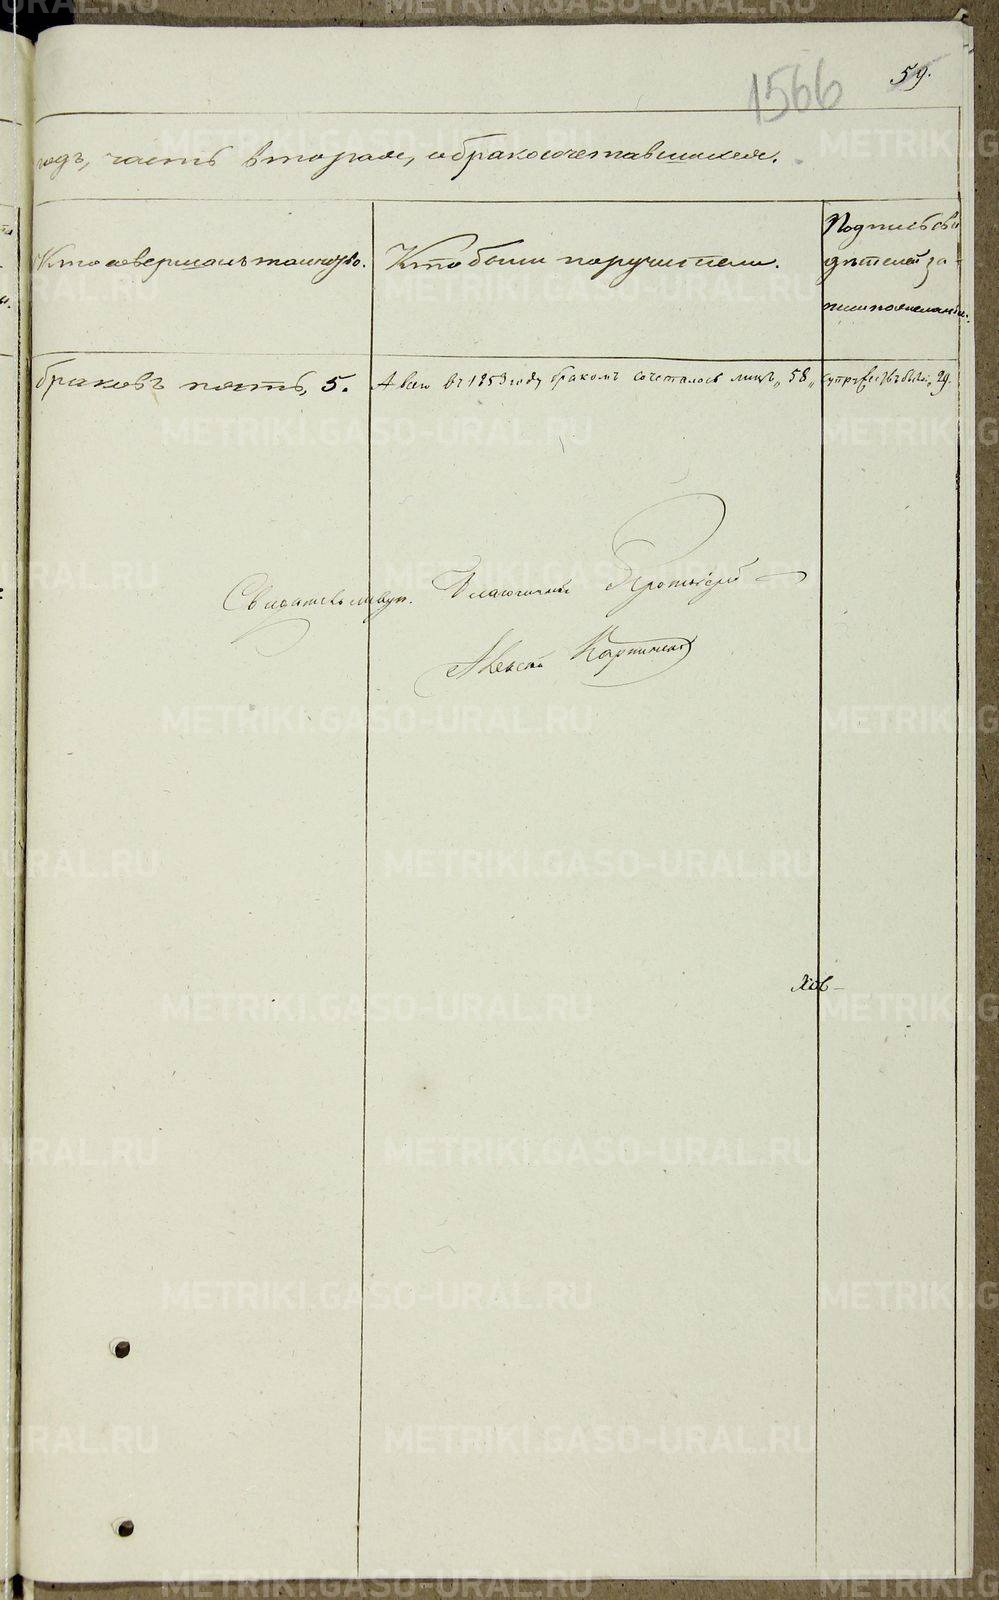 59.
1566
годъ, часть вторая, о бракосочетавшихся.
Кто совершалъ таинство.
Кто были поручители.
Подпись сви
дѣтелей за-
писи по желанію.
браковъ пять, 5.
А всего въ 1853 году бракомъ сочеталось лицъ „58„ супружествъ было „29.
Свидѣтельствую. Благочинный Протоіерей
Алексій Карпинскій
METRIKI.GASO-URAL.RU